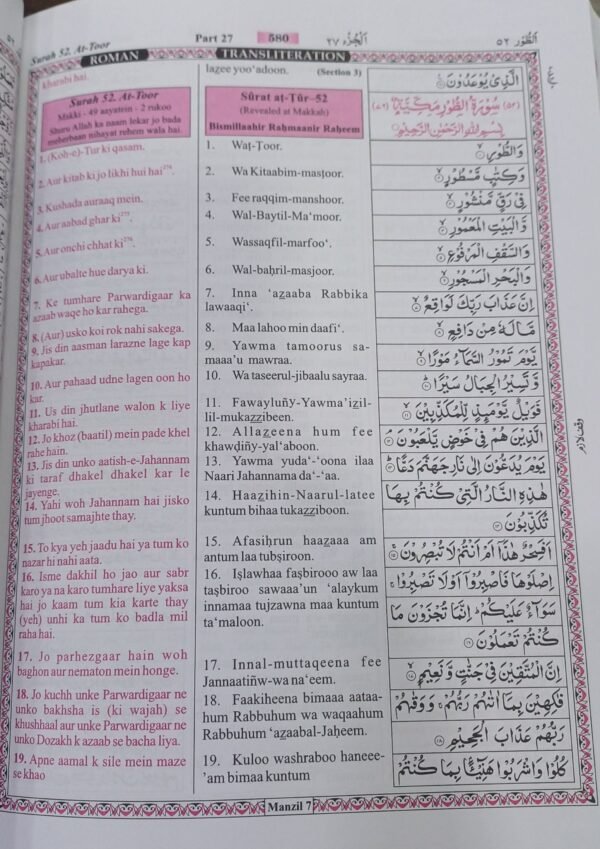 Surah 52. At-Toor
Part 27
580
اَلْجُزْء ٢٧
اَلطُّوْر ٥٢
ROMAN
TRANSLITERATION
kharabi hai.
Surah 52. At-Toor
Makki - 49 aayatein - 2 rukoo
Shuru Allah ka naam lekar jo bada
meherbaan nihayat rehem wala hai.
1. (Koh-e)-Tur ki qasam.
2. Aur kitab ki jo likhi hui hai
3. Kushada auraaq mein.
4. Aur aabad ghar ki
5. Aur onchi chhat ki
6. Aur ubalte hue darya ki.
7. Ke tumhare Parwardigaar ka
azaab waqe ho kar rahega.
8. (Aur) usko koi rok nahi sakega.
9. Jis din aasman larazne lage kap
kapakar.
10. Aur pahaad udne lagen oon ho
kar.
11. Us din jhutlane walon k liye
kharabi hai.
12. Jo khoz (baatil) mein pade khel
rahe hain.
13. Jis din unko aatish-e-Jahannam
ki taraf dhakel dhakel kar le
jayenge.
14. Yahi woh Jahannam hai jisko
tum jhoot samajhte thay.
15. To kya yeh jaadu hai ya tum ko
nazar hi nahi aata.
16. Isme dakhil ho jao aur sabr
karo ya na karo tumhare liye yaksa
hai jo kaam tum kia karte thay
(yeh) unhi ka tum ko badla mil
raha hai.
17. Jo parhezgaar hain woh
baghon aur nematon mein honge.
18. Jo kuchh unke Parwardigaar ne
unko bakhsha is (ki wajah) se
khushhaal aur unke Parwardigaar ne
unko Dozakh k azaab se bacha liya.
19. Apne aamal k sile mein maze
se khao
lazee yoo'adoon. (Section 3)
Sûrat aṭ-Ṭûr–52
(Revealed at Makkah)
Bismillaahir Raḥmaanir Raḥeem
1. Waṭ-Ṭoor.
2. Wa Kitaabim-masṭoor.
3. Fee raqqim-manshoor.
4. Wal-Baytil-Ma‘moor.
5. Wassaqfil-marfoo‘.
6. Wal-baḥril-masjoor.
7. Inna ‘azaaba Rabbika
lawaaqi‘.
8. Maa lahoo min daafi‘.
9. Yawma tamoorus sa-
maaa'u mawraa.
10. Wa taseerul-jibaalu sayraa.
11. Fawayluñy-Yawma'izil-
lil-mukazzibeen.
12. Allazeena hum fee
khawḍiñy-yal‘aboon.
13. Yawma yuda‘-‘oona ilaa
Naari Jahannama da‘-‘aa.
14. Haazihin-Naarul-latee
kuntum bihaa tukazziboon.
15. Afasiḥrun haazaaa am
antum laa tubṣiroon.
16. Iṣlawhaa faṣbirooo aw laa
taṣbiroo sawaaa'un ‘alaykum
innamaa tujzawna maa kuntum
ta‘maloon.
17. Innal-muttaqeena fee
Jannaatiñw-wa na‘eem.
18. Faakiheena bimaaa aataa-
hum Rabbuhum wa waqaahum
Rabbuhum ‘azaabal-Jaḥeem.
19. Kuloo washraboo haneee-
'am bimaa kuntum
الَّذِيْ يُوْعَدُوْنَ
(٥٢) سُوْرَةُ الطُّوْرِ مَكِّيَّةٌ (٧٦)
بِسْمِ اللهِ الرَّحْمٰنِ الرَّحِيْمِ
وَالطُّوْرِ ۙ١
وَكِتٰبٍ مَّسْطُوْرٍ ۙ٢
فِيْ رَقٍّ مَّنْشُوْرٍ ۙ٣
وَّالْبَيْتِ الْمَعْمُوْرِ ۙ٤
وَالسَّقْفِ الْمَرْفُوْعِ ۙ٥
وَالْبَحْرِ الْمَسْجُوْرِ ۙ٦
اِنَّ عَذَابَ رَبِّكَ لَوَاقِعٌ ۙ٧
مَّا لَهٗ مِنْ دَافِعٍ ۙ٨
يَّوْمَ تَمُوْرُ السَّمَآءُ مَوْرًا ۙ٩
وَّتَسِيْرُ الْجِبَالُ سَيْرًا ؕ١٠
فَوَيْلٌ يَّوْمَئِذٍ لِّلْمُكَذِّبِيْنَ ۙ١١
الَّذِيْنَ هُمْ فِيْ خَوْضٍ يَّلْعَبُوْنَ ۘ١٢
وقف لازم
يَوْمَ يُدَعُّوْنَ اِلٰى نَارِ جَهَنَّمَ دَعًّا ؕ١٣
هٰذِهِ النَّارُ الَّتِيْ كُنْتُمْ بِهَا
تُكَذِّبُوْنَ ١٤
اَفَسِحْرٌ هٰذَآ اَمْ اَنْتُمْ لَا تُبْصِرُوْنَ ۚ١٥
اِصْلَوْهَا فَاصْبِرُوْٓا اَوْ لَا تَصْبِرُوْا ۚ
سَوَآءٌ عَلَيْكُمْ ؕ اِنَّمَا تُجْزَوْنَ مَا
كُنْتُمْ تَعْمَلُوْنَ ١٦
اِنَّ الْمُتَّقِيْنَ فِيْ جَنّٰتٍ وَّنَعِيْمٍ ۙ١٧
فٰكِهِيْنَ بِمَآ اٰتٰىهُمْ رَبُّهُمْ ۚ وَوَقٰىهُمْ
رَبُّهُمْ عَذَابَ الْجَحِيْمِ ١٨
كُلُوْا وَاشْرَبُوْا هَنِيْٓـًٔا بِمَا كُنْتُمْ
Manzil 7